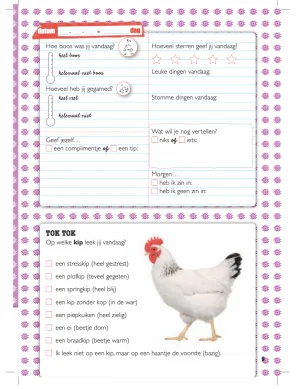 datum . . - . . - . . . . dag
Hoe boos was jij vandaag?
heel boos
helemaal niet boos
Hoeveel heb jij gegamed?
heel veel
helemaal niet
Geef jezelf…
een complimentje of een tip:
Hoeveel sterren geef jij vandaag?
Leuke dingen vandaag:
Stomme dingen vandaag:
Wat wil je nog vertellen?
niks of iets:
Morgen…
heb ik zin in:
heb ik geen zin in:
TOK TOK
Op welke kip leek jij vandaag?
een stresskip (heel gestrest)
een plofkip (teveel gegeten)
een springkip (heel blij)
een kip zonder kop (in de war)
een piepkuiken (heel zielig)
een ei (beetje dom)
een braadkip (beetje warm)
Ik leek niet op een kip, maar op een haantje de voorste (bazig).